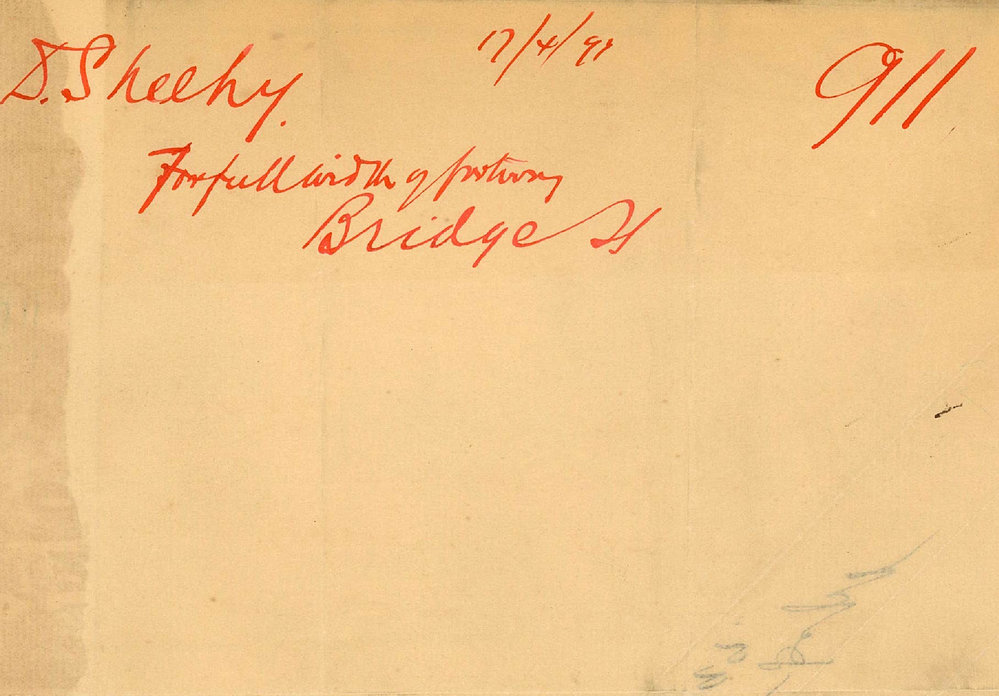 D. Sheehy. 17/4/91 911
For full width of footway
Bridge St